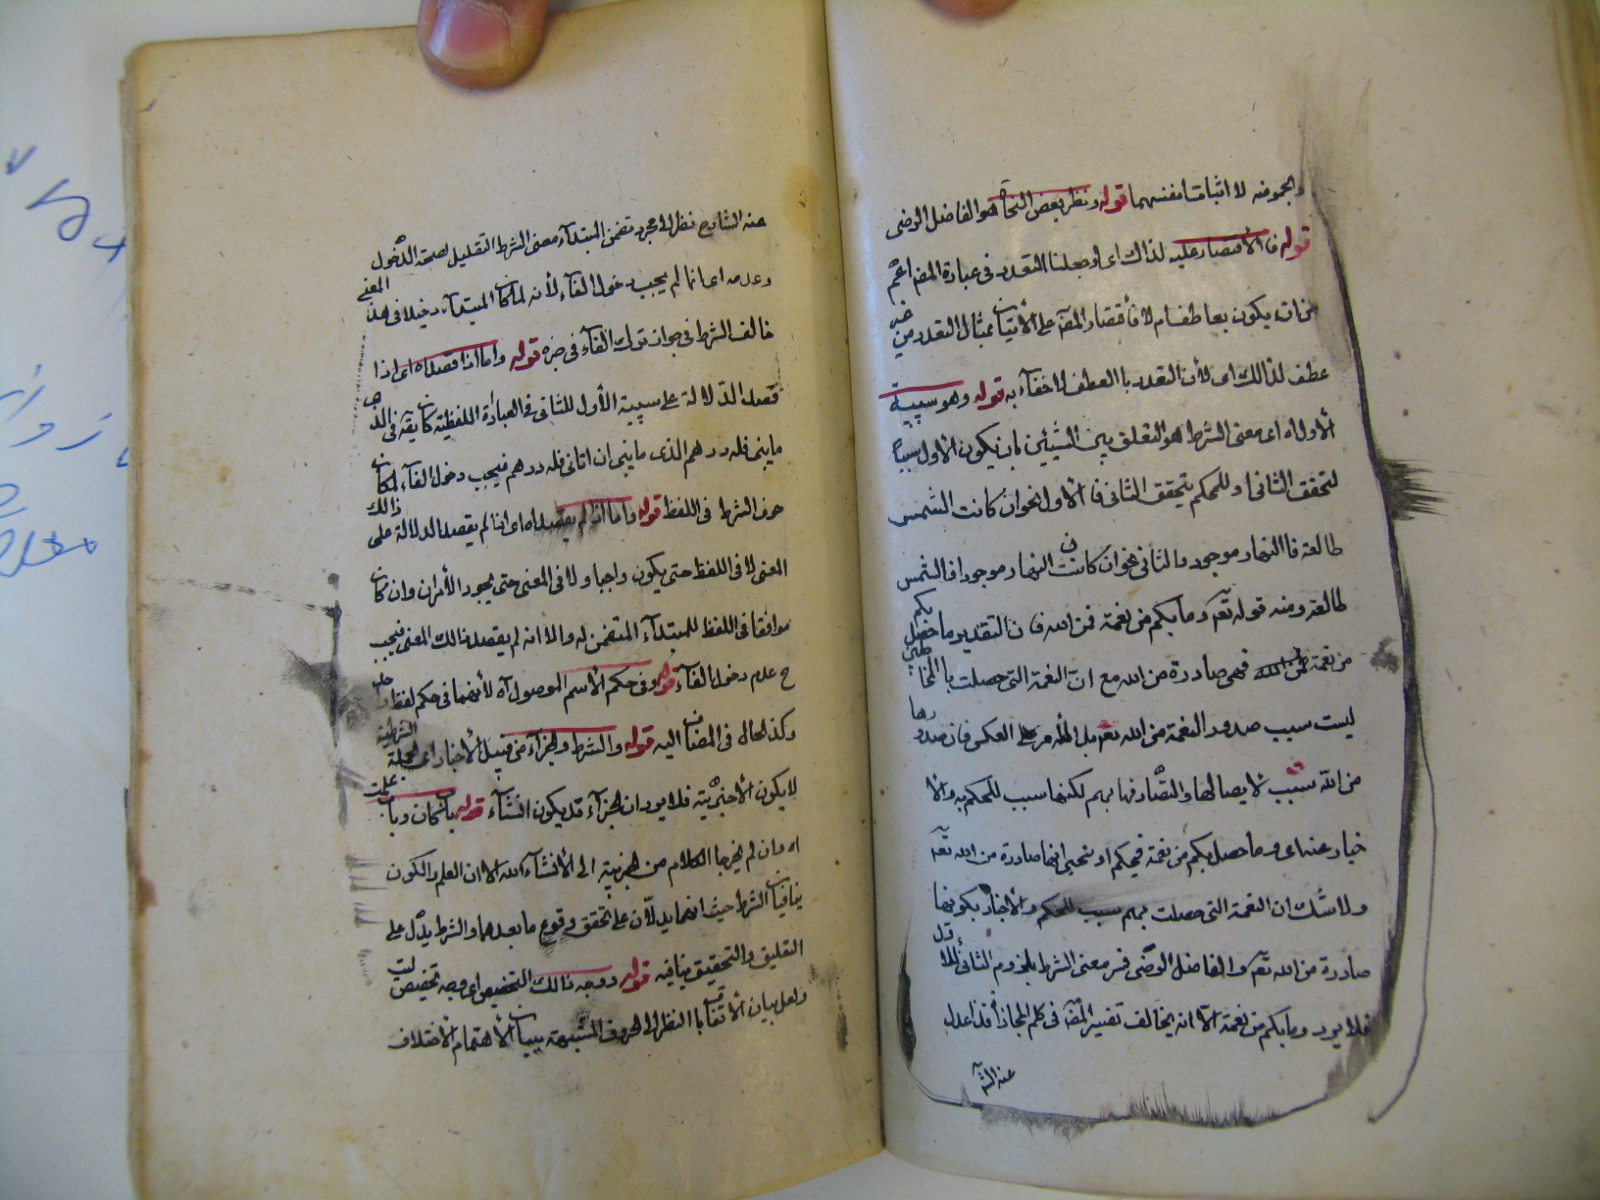 والجموضه لا اثباتا نفسهما قوله ونظر بعض النحاة هو الفاضل الرضى
قوله فالأقتصار عليه لذالك اى لو جعلنا التعدد فى عبارة المصـ اعم
من ان يكون بعاطف ام لا فأقتصار المصـ على الأتيان بمثال التعدد من غير
عطف لذالك اى لأن التعدد با العطف لا خفآء به قوله وهو سببية
الأول اه اى معنى الشرط هو التعلق بين الشيئين بان يكون الاول سببا
لتحقق الثانى او للحكم بتحقق الثانى فا الأول نحو ان كانت الشمس
طالعة فا النهار موجود والثانى نحو ان كان النهار موجودا فا الشمس
طالعة ومنه قوله تعـ وما بكم من نعمة فمن الله فان التقدير ما حصل بكم
من نعمة فهى صادرة من الله مع ان النعمة التى حصلت با المخاطبين
ليست سبب صدور النعمة من الله تعـ بل الأمر على العكس فان صدورها
من الله سبب لايصالها والتصارفها بهم لكنها سبب للحكم به والا
خبار عنه اى وما حصل بكم من نعمة فيحكم او نخبر انها صادرة من الله تعـ
ولا شك ان النعمة التى حصلت بهم سبب للحكم والأخبار بكونها
صادرة من الله تعـ والفاضل الرضى فسر معنى الشرط بلزوم الثانى للأول
فلا يرد وما بكم من نعمة الا انه يخالف تفسير المصـ فى كلم المجازاة فلذا عدل
عنه الشـ
عنه الشارح نظرا الى مجرد تضمن المبتدآء معنى الشرط التقليل لصحة الدخول
وعدمه اى انما لم يجب دخول الفآء لأنه لما كان المبتدآء دخيلا فى هذا المعنى
خالف الشرط فى جواز ترك الفآء فى خبره قوله واما اذا قصد اه اى اذا
قصد الدلالة على سببية الأول للثانى فى العبارة اللفظية كما يقـ فى الذى
ياتينى فله درهم الذى ياتينى ان اتانى فله درهم فيجب دخول الفآء لمكان
حرف الشرط فى اللفظ قوله واما اذا لم يقصد اه اى اذا لم يقصد الدلالة على ذالك
المعنى لا فى اللفظ حتى يكون واجبا ولا فى المعنى حتى يجوز الأمران وان كان
موافقا فى اللفظ للمبتدآء المتضمن له والا انه لم يقصد ذالك المعنى فيجب
ح عدم دخول الفآء قوله وفى حكم الأسم الموصول اه لأنهما فى حكم لفظ واحد
وكذا الحال فى المضاف اليه قوله والشرط والجزآء من قبيل الأخبار اى الجملة الشرطية
لا يكون الأ خبرية فلا يرد ان الجزآء قد يكون انشآء قوله باب كان وباب علمت
اه وان لم يخرجا الكلام من الخبرية الى الأنشآء الا ان العلم والكون
ينافيان الشرط حيث انهما يدلان على تحقق وقوع ما بعدهما والشرط يدل على
التعليق والتحقيق ينافيه قوله ووجه ذالك التخصيص اى وجه تخصيص
ولعل بيان الأتفاق با النظر الى الحروف المشبهة بيان الأهتمام الأختلاف